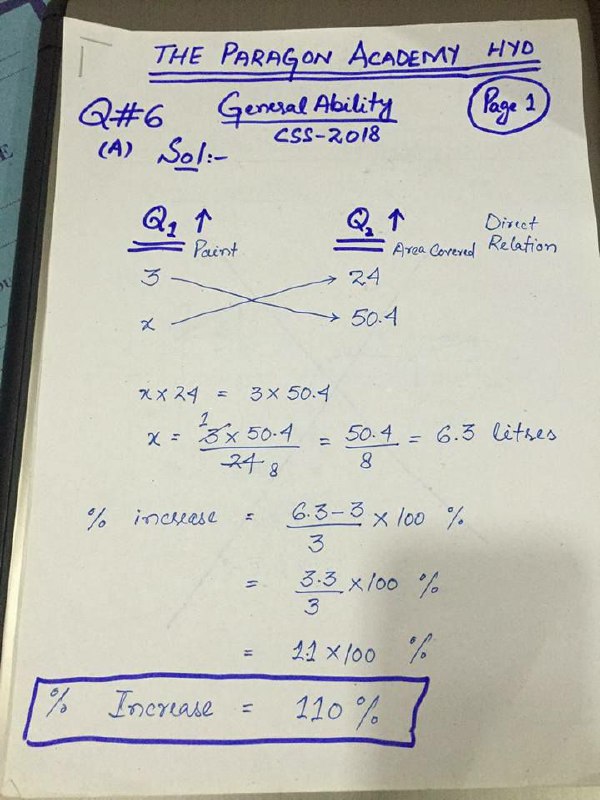 THE PARAGON ACADEMY HYD
Q#6 General Ability Page 1
CSS-2018
(A) Sol:-
Q1 ↑ Q2 ↑ Direct
Paint Area Covered Relation
3 24
x 50.4
x × 24 = 3 × 50.4
x = 3 × 50.4 / 24 = 50.4 / 8 = 6.3 litres
1
8
% increase = 6.3 - 3 / 3 × 100 %
= 3.3 / 3 × 100 %
= 1.1 × 100 %
% Increase = 110 %